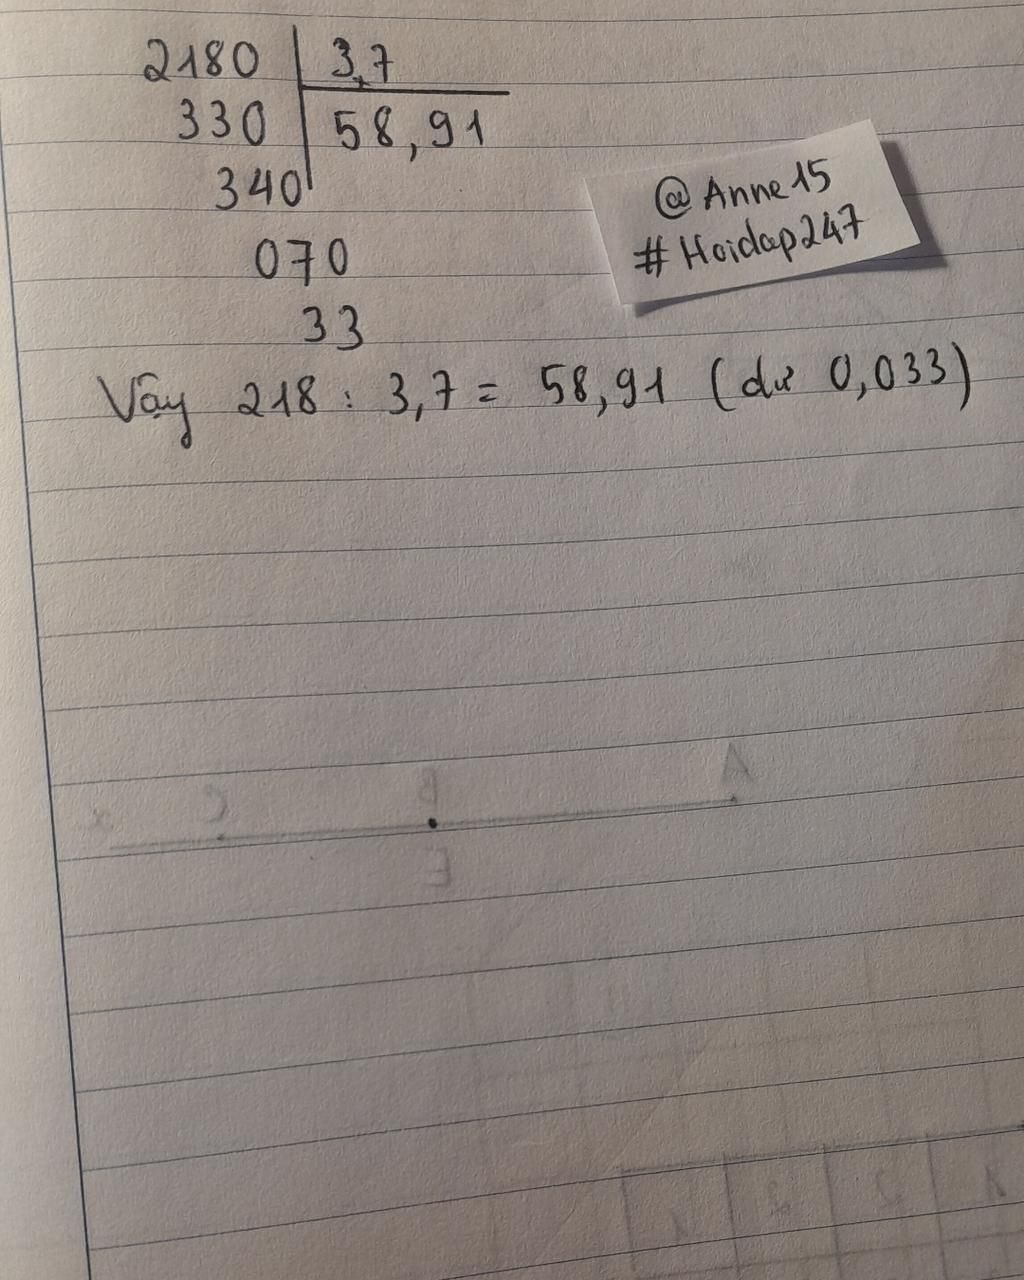 2180 3,7
330 58,91
340
070
33
Vậy 218 : 3,7 = 58,91 (dư 0,033)
@Anne15
#Hoidap247
A
B
C
x
E